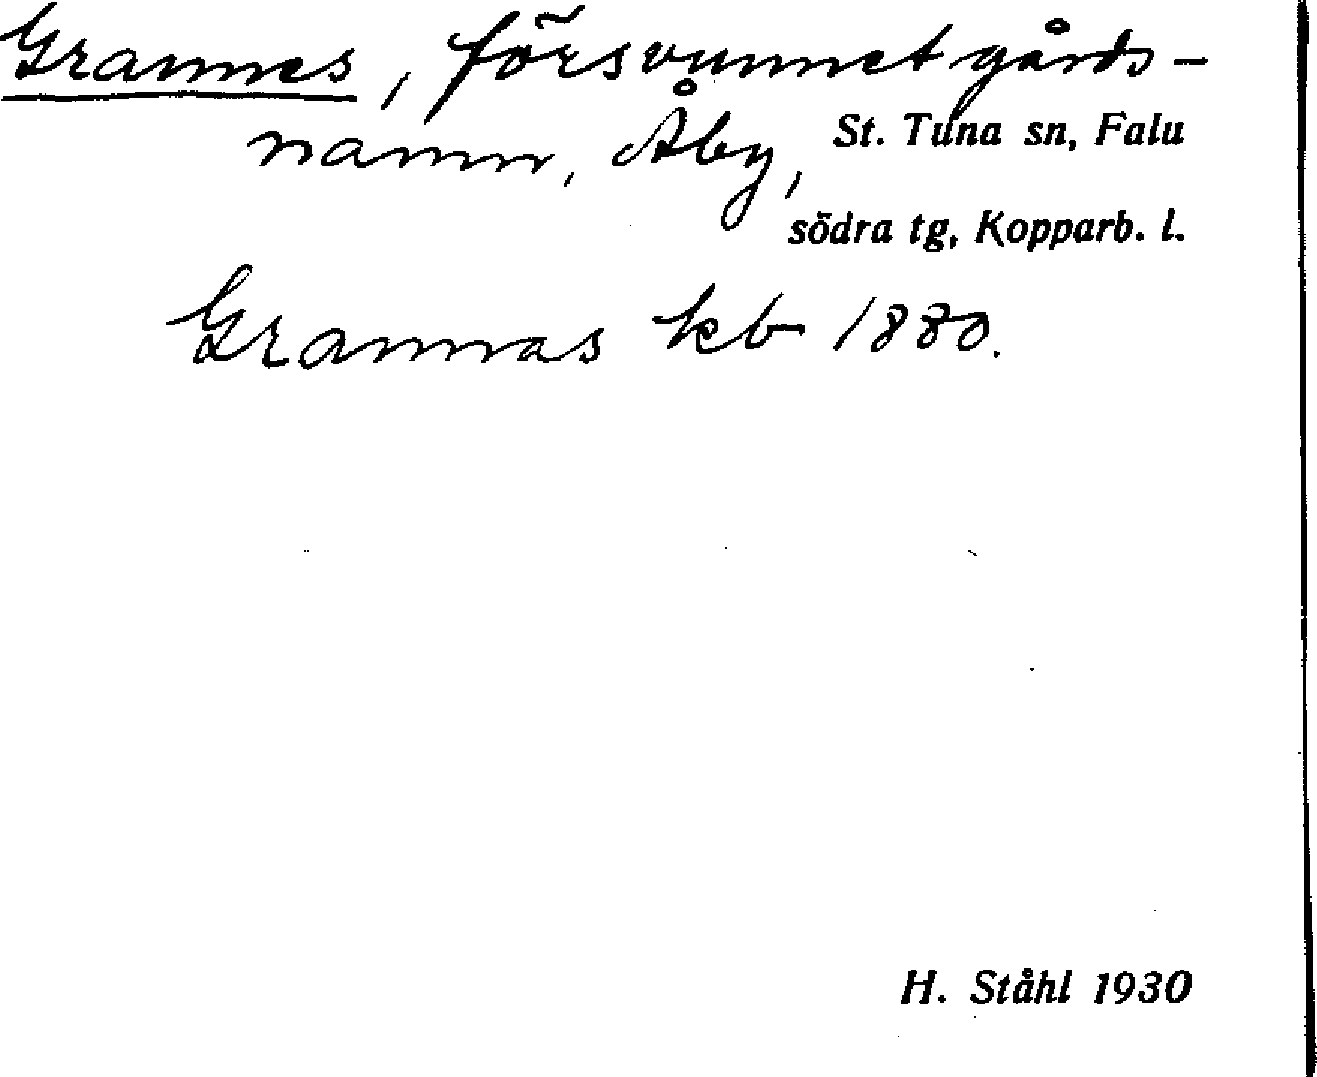 Grannes, försvunnet gårds-
namn, Åby, St. Tuna sn, Falu
södra tg, Kopparb. l.
Grannas kb 1880.
H. Ståhl 1930